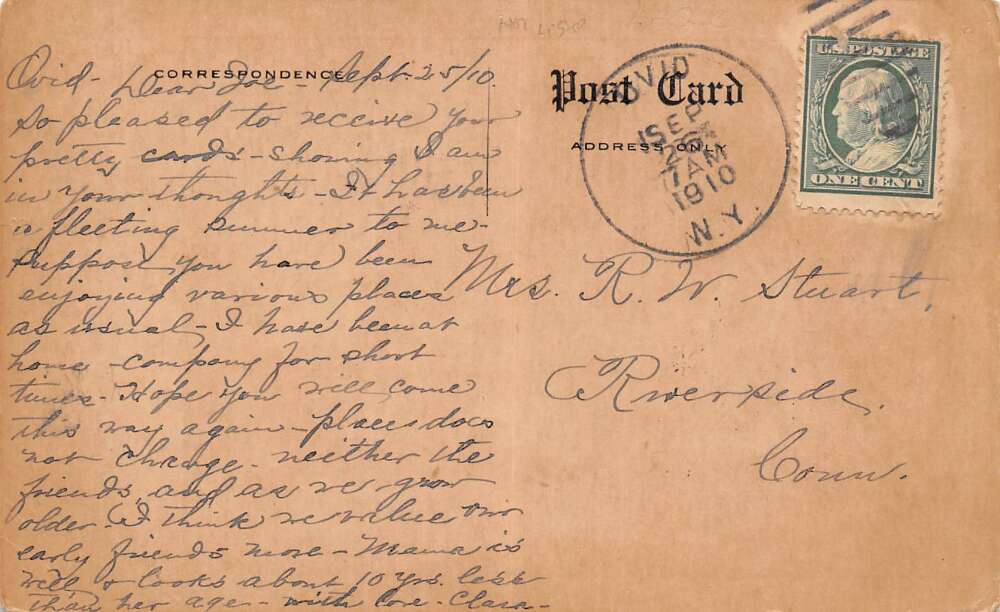 CORRESPONDENCE
Ovid - Sept. 25/10.
Dear Joe -
So pleased to receive your
pretty cards - showing I am
in your thoughts - It has been
a fleeting summer to me -
Suppose you have been
enjoying various places
as usual - I have been at
home - company for short
times - Hope you will come
this way again - places does
not change - neither the
friends, and as we grow
older - I think we value our
early friends more - Mama is
well & looks about 10 yrs. less
than her age - with love - Clara -
Post Card
ADDRESS ONLY
OVID
SEP
26
7 AM
1910
N.Y.
U.S. POSTAGE
ONE CENT
Mrs. R. W. Stuart,
Riverside,
Conn.